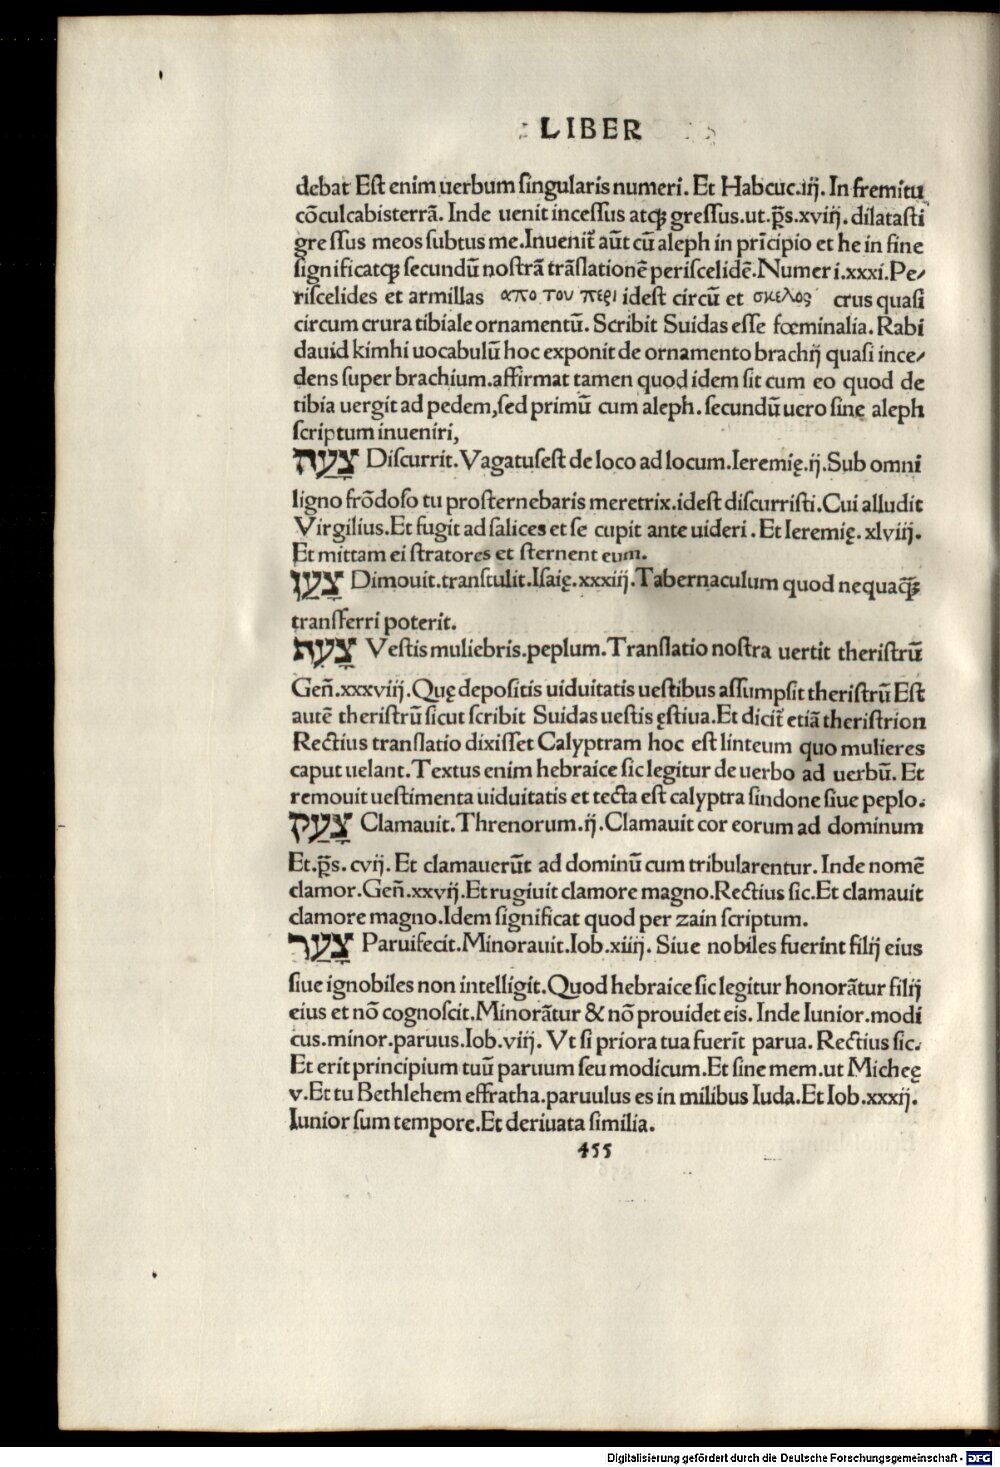 LIBER
debat Eſt enim uerbum ſingularis numeri. Et Habcuc.iij. In fremitu
cōculcabisterrā. Inde uenit inceſſus atqꝫ greſſus.ut.p̄s.xviij.dilataſti
greſſus meos ſubtus me.Inuenit᷑ aūt cū aleph in prīcipio et he in fine
ſignificatqꝫ ſecundū noſtrā trāſlationē periſcelidē.Numeri.xxxi.Pe⸗
riſcelides et armillas απο του περι ideſt circū et σκελος crus quaſi
circum crura tibiale ornamentū. Scribit Suidas eſſe fœminalia. Rabi
dauid kimhi uocabulū hoc exponit de ornamento brachij quaſi ince⸗
dens ſuper brachium.affirmat tamen quod idem ſit cum eo quod de
tibia uergit ad pedem,ſed primū cum aleph. ſecundū uero ſine aleph
ſcriptum inueniri,
צָעָה Diſcurrit. Vagatuſeſt de loco ad locum.Ieremię.ij.Sub omni
ligno frōdoſo tu proſternebaris meretrix.ideſt diſcurriſti.Cui alludit
Virgilius.Et fugit ad ſalices et ſe cupit ante uideri. Et Ieremię. xlviij.
Et mittam ei ſtratores et ſternent eum.
צָעַן Dimouit.tranſtulit.Iſaię.xxxiij.Tabernaculum quod nequaqꝫ̄
tranſferri poterit.
צָעִת Veſtis muliebris.peplum.Tranſlatio noſtra uertit theriſtrū
Geñ.xxxviij.Quę depoſitis uiduitatis ueſtibus aſſumpſit theriſtrū Eſt
autē theriſtrū ſicut ſcribit Suidas ueſtis ęſtiua.Et dicit᷑ etiā theriſtrion
Rectius tranſlatio dixiſſet Calyptram hoc eſt linteum quo mulieres
caput uelant.Textus enim hebraice ſic legitur de uerbo ad uerbū. Et
remouit ueſtimenta uiduitatis et tecta eſt calyptra ſindone ſiue peplo.
צָעַק Clamauit.Threnorum.ij.Clamauit cor eorum ad dominum
Et.p̄s. cvij. Et clamauerūt ad dominū cum tribularentur. Inde nomē
clamor.Geñ.xxvij.Et rugiuit clamore magno.Rectius ſic.Et clamauit
clamore magno.Idem ſignificat quod per zain ſcriptum.
צָעַר Paruifecit.Minorauit.Iob.xiiij. Siue nobiles fuerint filij eius
ſiue ignobiles non intelligit.Quod hebraice ſic legitur honorātur filij
eius et nō cognoſcit.Minorātur & nō prouidet eis. Inde Iunior.modi
cus.minor.paruus.Iob.viij. Vt ſi priora tua fuerīt parua. Rectius ſic.
Et erit principium tuū paruum ſeu modicum.Et ſine mem.ut Micheę
v.Et tu Bethlehem effratha.paruulus es in milibus Iuda.Et Iob.xxxij.
Iunior ſum tempore.Et deriuata ſimilia.
455
Digitalisierung gefördert durch die Deutsche Forschungsgemeinschaft - DFG